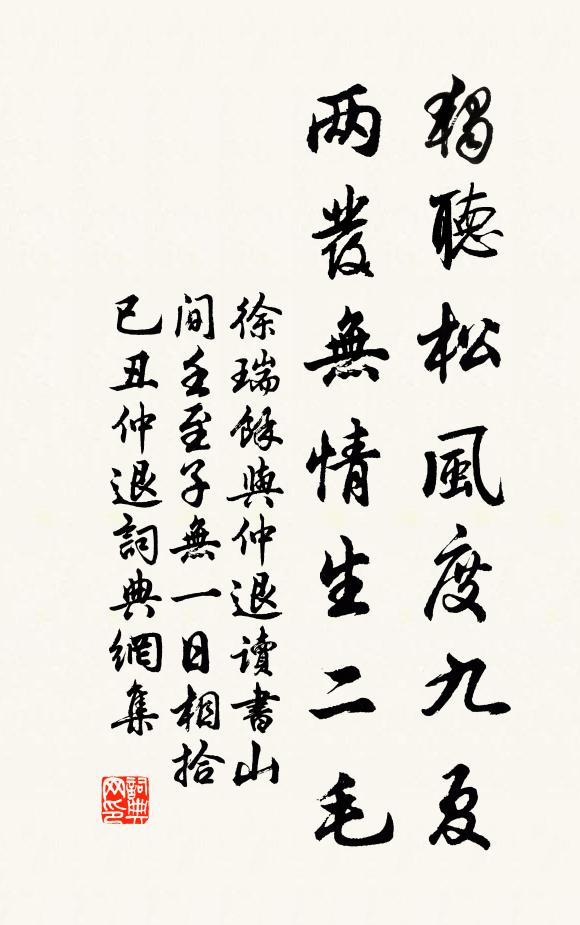 獨聽松風度九夏
兩發無情生二毛
徐瑞餘與仲退讀書山
間壬至子無一日相拾
己丑仲退詞典網集
詞典网印